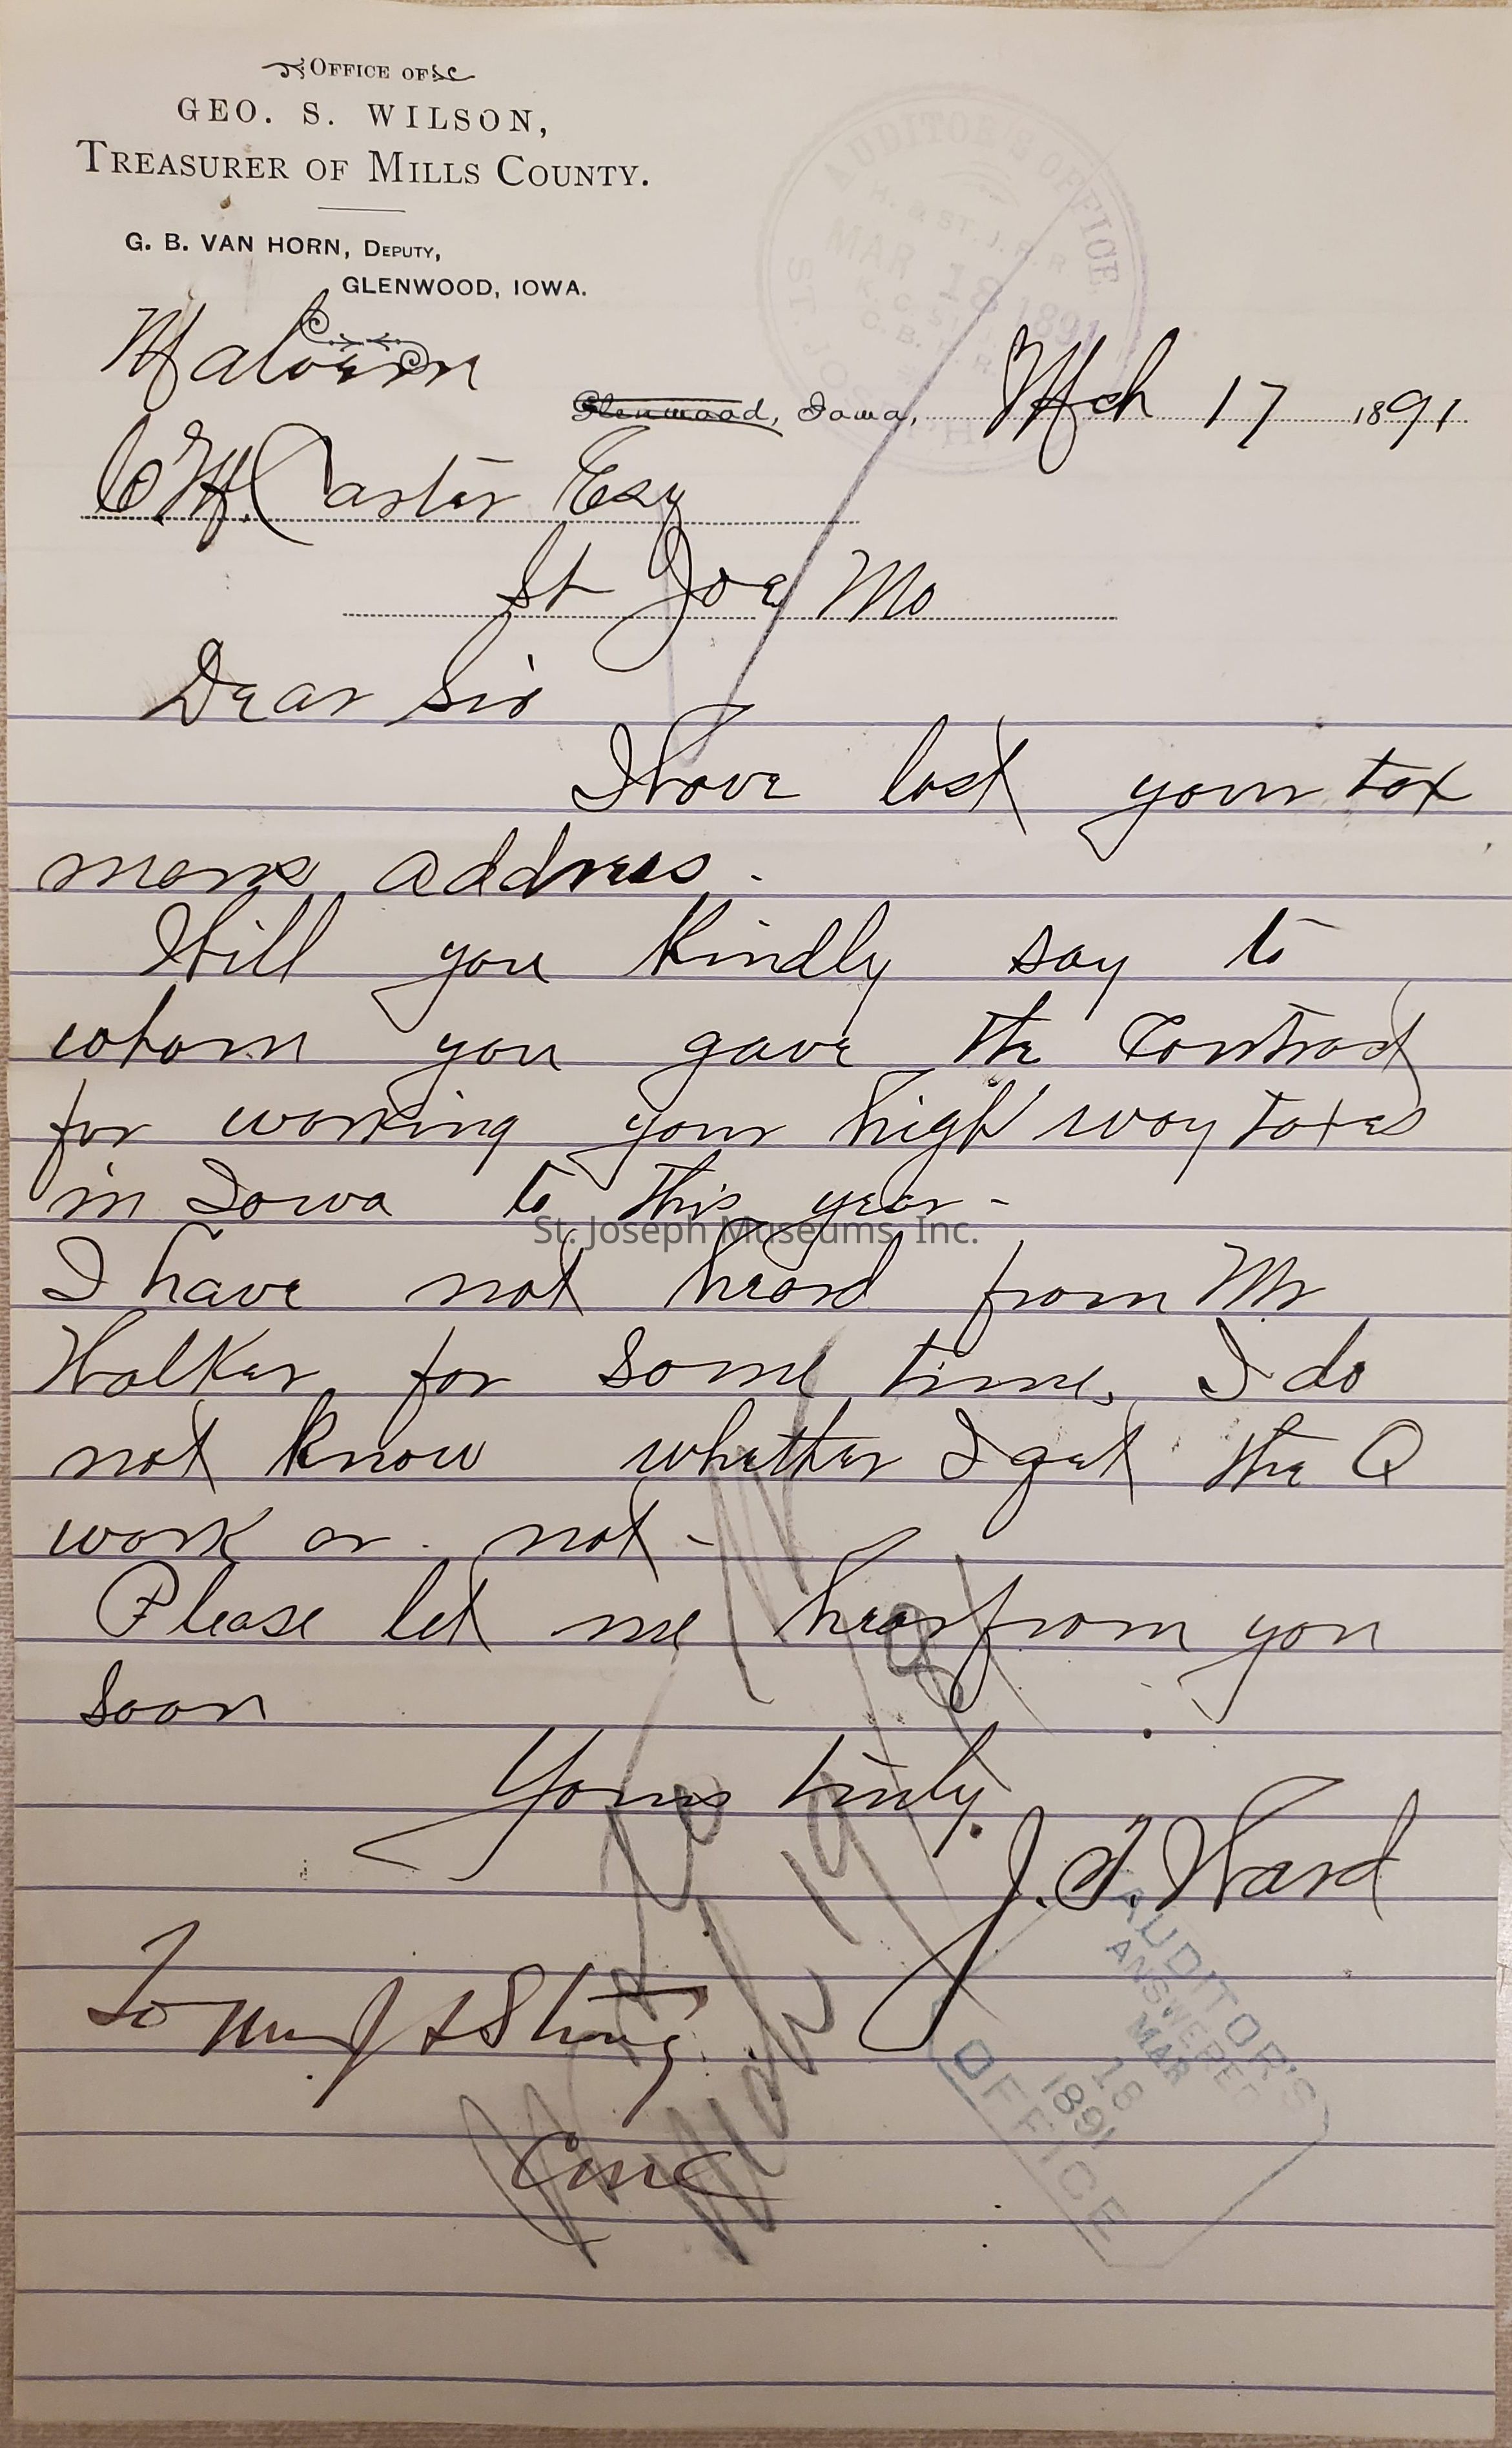 OFFICE OF
GEO. S. WILSON,
TREASURER OF MILLS COUNTY.
G. B. VAN HORN, DEPUTY,
GLENWOOD, IOWA.
AUDITOR'S OFFICE
H. & ST. J. R. R.
MAR 18 1891
ST. JOSEPH
Malvern
Glenwood, Iowa, Mch 17 1891
Carter Esq
St Joe Mo
Dear Sir
I have lost your tax
mans address.
Will you Kindly say to
whom you gave the Contract
for working your high way taxes
in Iowa to this year -
St. Joseph Museums, Inc.
I have not heard from Mr
Walker for some time, I do
not Know whether I get the Q
work or not -
Please let me hear from you
soon
Yours truly,
J. T. Ward
To
Mch 19
AUDITOR'S
ANSWERED
MAR 18
1891
OFFICE